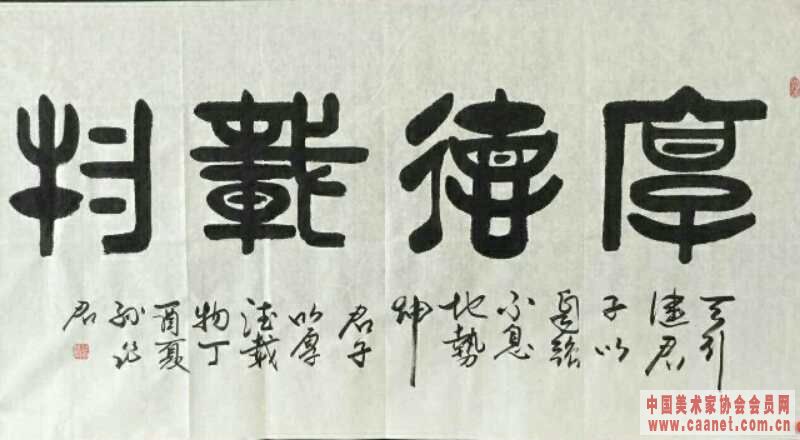 厚德載物
天行
健君
子以
自强
不息
地勢
坤
君子
以厚
德載
物丁
酉夏
孙
君
中国美术家协会会员网
www.caanet.com.cn